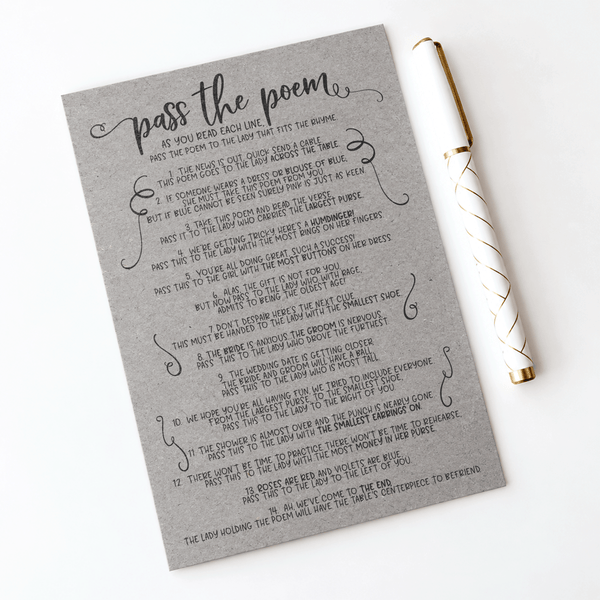 pass the poem
AS YOU READ EACH LINE,
PASS THE POEM TO THE LADY THAT FITS THE RHYME.
1. THE NEWS IS OUT, QUICK SEND A CABLE
THIS POEM GOES TO THE LADY ACROSS THE TABLE.
2. IF SOMEONE WEARS A DRESS OR BLOUSE OF BLUE,
SHE MUST TAKE THIS POEM FROM YOU
BUT IF BLUE CANNOT BE SEEN SURELY PINK IS JUST AS KEEN
3. TAKE THIS POEM AND READ THE VERSE
PASS IT TO THE LADY WHO CARRIES THE LARGEST PURSE.
4. WE'RE GETTING TRICKY HERE'S A HUMDINGER!
PASS THIS TO THE LADY WITH THE MOST RINGS ON HER FINGERS
5. YOU'RE ALL DOING GREAT, SUCH A SUCCESS!
PASS THIS TO THE GIRL WITH THE MOST BUTTONS ON HER DRESS
6. ALAS, THE GIFT IS NOT FOR YOU
BUT NOW PASS TO THE LADY WHO WITH RAGE,
ADMITS TO BEING THE OLDEST AGE!
7. DON'T DESPAIR HERE'S THE NEXT CLUE
THIS MUST BE HANDED TO THE LADY WITH THE SMALLEST SHOE
8. THE BRIDE IS ANXIOUS THE GROOM IS NERVOUS
PASS THIS TO THE LADY WHO DROVE THE FURTHEST
9. THE WEDDING DATE IS GETTING CLOSER
THE BRIDE AND GROOM WILL HAVE A BALL
PASS THIS TO THE LADY WHO IS MOST TALL
10. WE HOPE YOU'RE ALL HAVING FUN, WE TRIED TO INCLUDE EVERYONE
FROM THE LARGEST PURSE TO THE SMALLEST SHOE,
PASS THIS TO THE LADY TO THE RIGHT OF YOU
11. THE SHOWER IS ALMOST OVER AND THE PUNCH IS NEARLY GONE
PASS THIS TO THE LADY WITH THE SMALLEST EARRINGS ON.
12. THERE WON'T BE TIME TO PRACTICE THERE WON'T BE TIME TO REHEARSE,
PASS THIS TO THE LADY WITH THE MOST MONEY IN HER PURSE.
13. ROSES ARE RED AND VIOLETS ARE BLUE
PASS THIS TO THE LADY TO THE LEFT OF YOU
14. AH, WE'VE COME TO THE END,
THE LADY HOLDING THE POEM WILL HAVE THE TABLE'S CENTERPIECE TO BEFRIEND